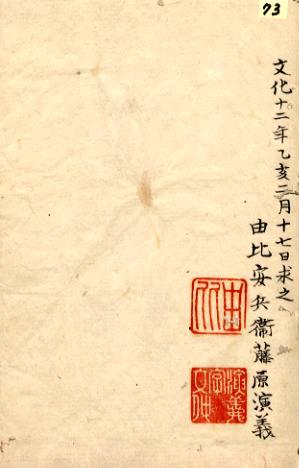 73
文化十二年乙亥二月十七日求之
由比安兵衞藤原演義
由比